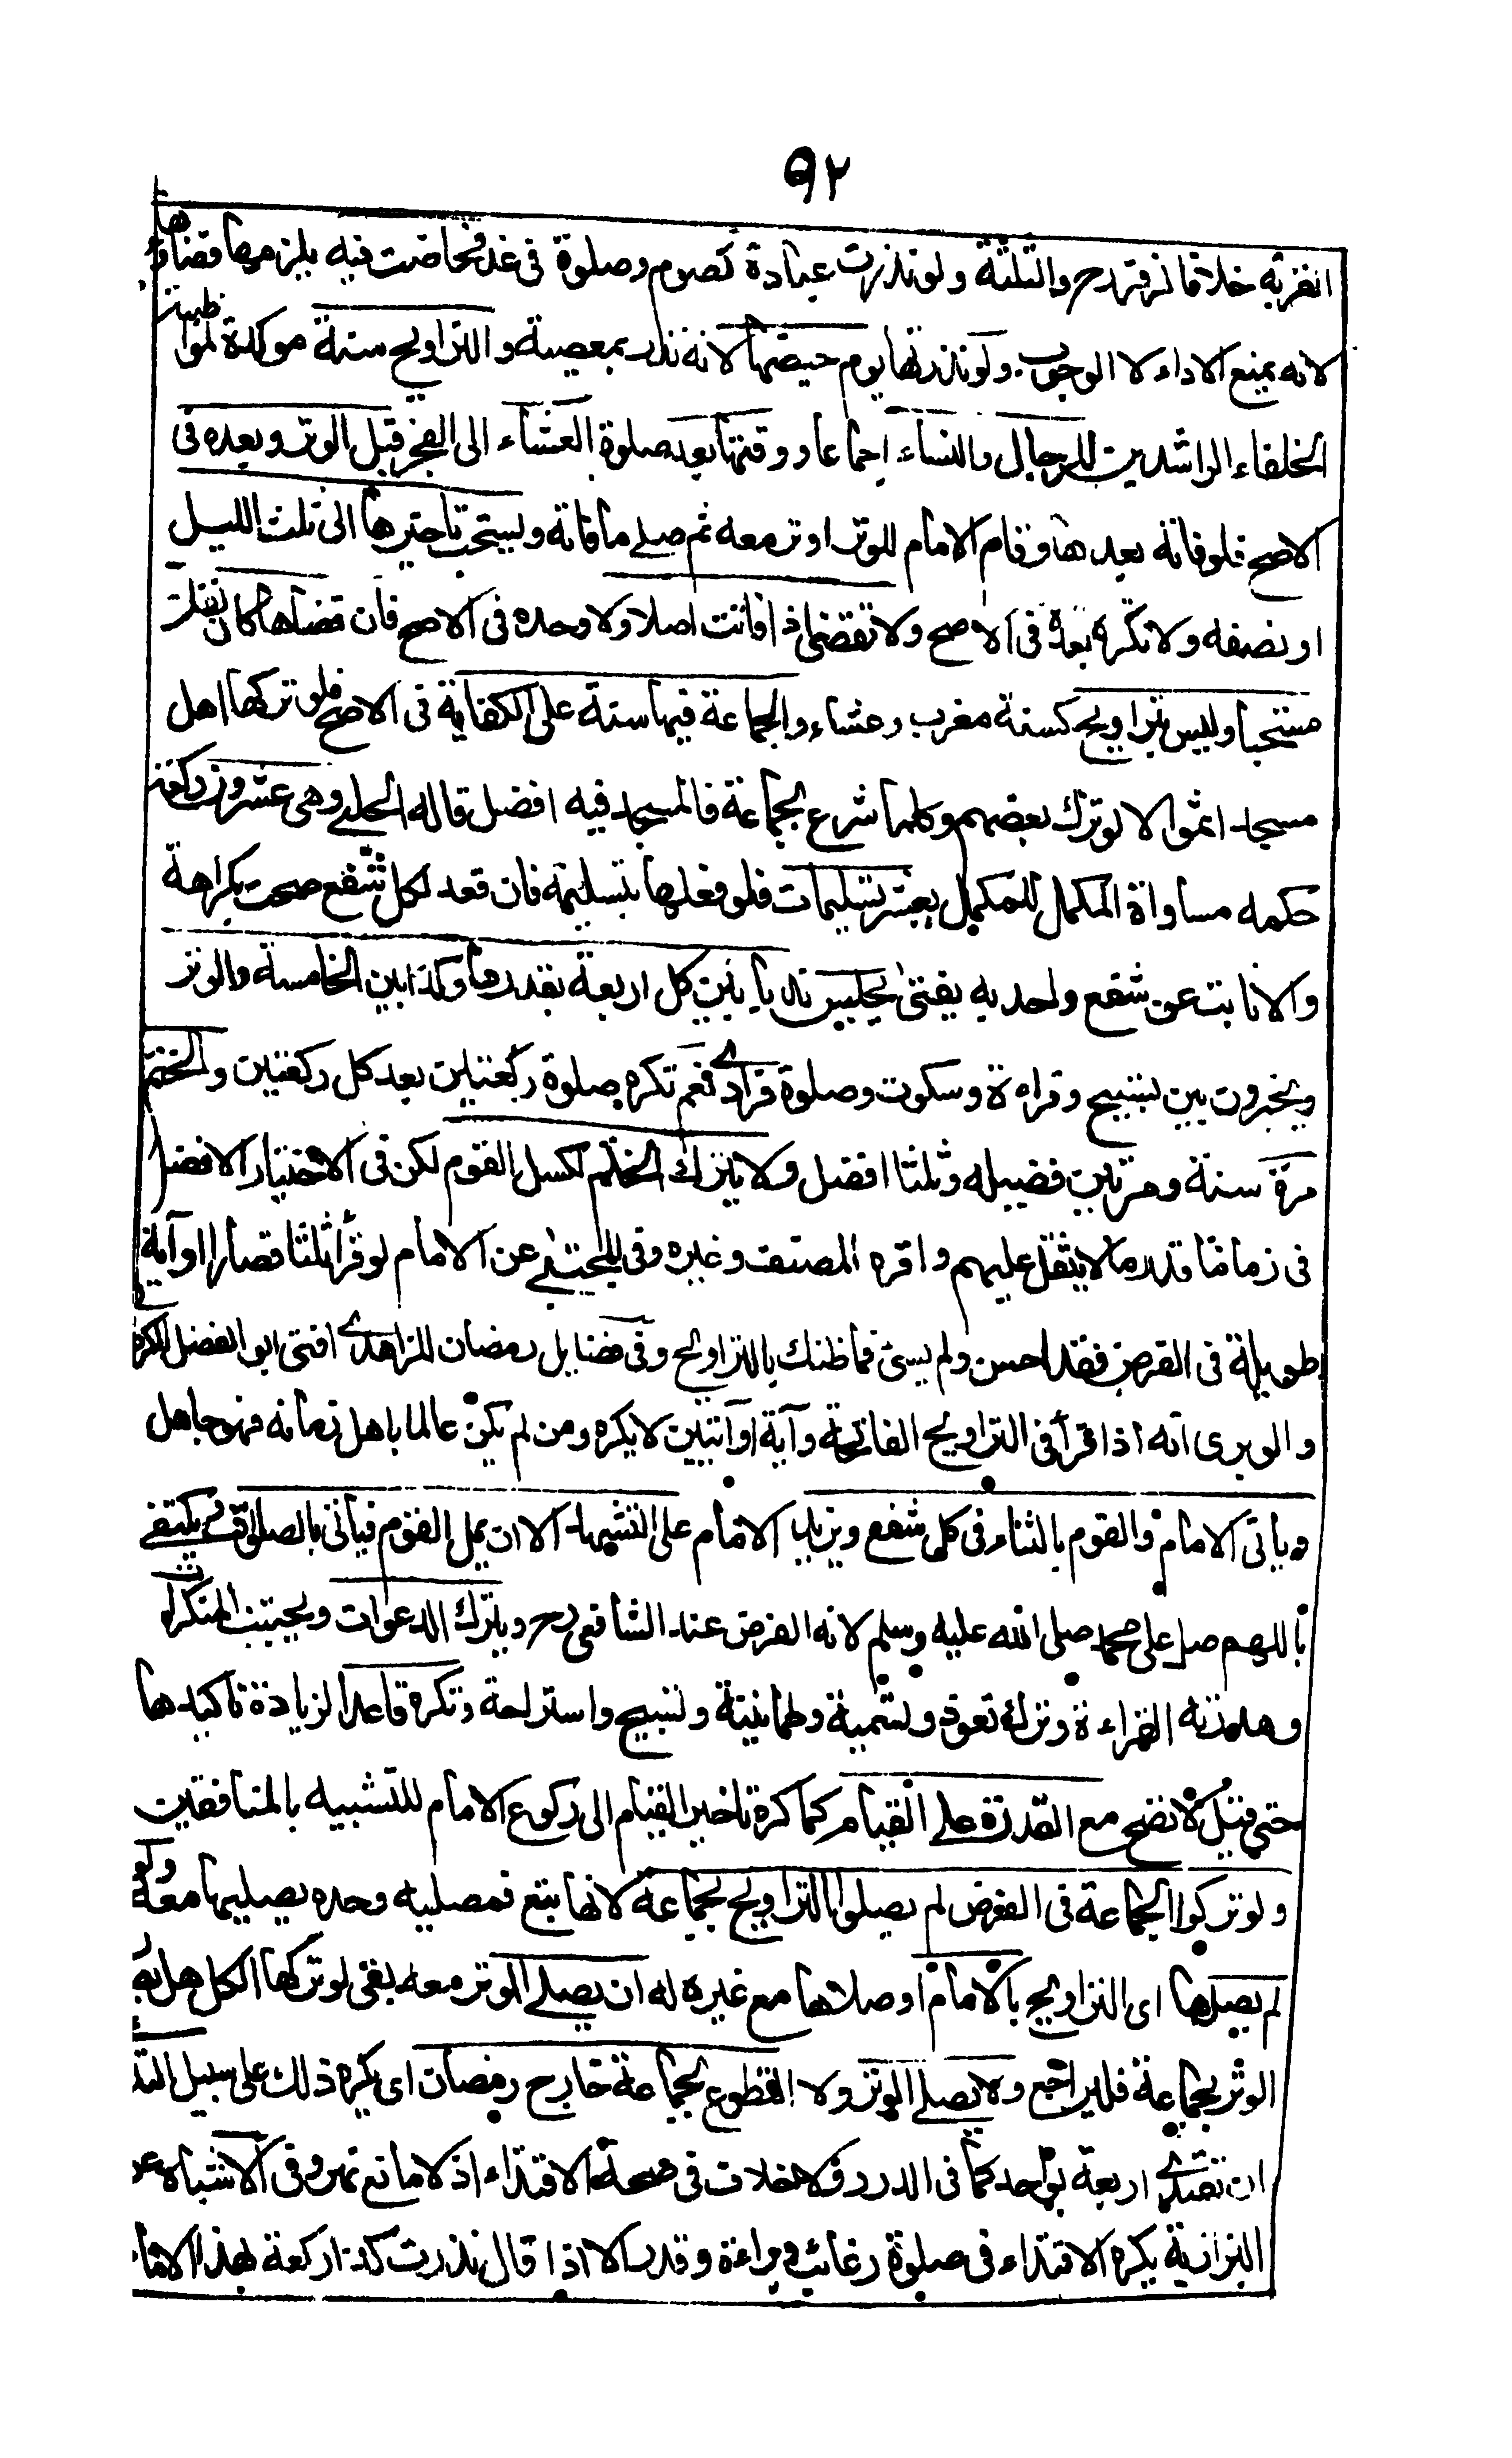 ٩٢
انفردبه خلافا لزفررح والثلثة ولو نذرت عبادة كصوم وصلوة فى غد فحاضت فيه يلزمها قضاؤها
لانه يمنع الاداء لا الوجوب ولو نذرتها يوم حيضها لا لانه نذر بمعصية والتراويح سنة موكدة لمواظبة
الخلفاء الراشدين للرجال والنساء اجماعا ووقتها بعد صلوة العشاء الى الفجر قبل الوتر وبعده فى
الاصح فلو فاته بعدها وقام الامام للوتر اوتر معه ثم صلى ما فاته ويستحب تاخيرها الى ثلث الليل
او نصفه ولا تكره بعده فى الاصح ولا تقضى اذا فاتت اصلا ولا وحده فى الاصح فان قضاها كان نفلا
مستحبا وليس بتراويح كسنة مغرب وعشاء والجماعة فيها سنة على الكفاية فى الاصح فلو تركها اهل
مسجد اثموا لا لو ترك بعضهم وكلما شرع بجماعة فالمسجد فيه افضل قاله الحلبى وهى عشرون ركعة
حكمه مساواة المكمل للمكمل بعشر تسليمات فلو فعلها بتسليمة فان قعد لكل شفع صحت بكراهة
والا نابت عن شفع واحد به يفتى يجلس ندبا بين كل اربعة بقدرها وكذا بين الخامسة والوتر
ويخيرون بين تسبيح وقراءة وسكوت وصلوة فرادى نعم تكره صلوة ركعتين بعد كل ركعتين والختم
مرة سنة ومرتين فضيله وثلثا افضل ولا يترك الختم لكسل القوم لكن فى الاختيار الافضل
فى زماننا قدر ما لا يثقل عليهم واقره المصنف وغيره وفى المجتبى عن الامام لو قرأ ثلثا قصارا او آية
طويلة فى الفرض فقد احسن ولم يسئ فما ظنك بالتراويح وفى فضايل رمضان للزاهدى افتى ابو الفضل الكر
والوبرى انه اذا قرأ فى التراويح الفاتحة وآية او آيتين لا يكره ومن لم يكن عالما باهل زمانه فهو جاهل
وياتى الامام والقوم بالثناء فى كل شفع ويزيد الامام على التشهد الا ان يمل القوم فياتى بالصلوة ويكتفى
باللهم صل على محمد صلى الله عليه وسلم لانه الفرض عند الشافعى رح ويترك الدعوات ويجتنب المنكرات
وهذرمة القراءة وترك تعوذ وتسمية وطمانينة وتسبيح واستراحة وتكره قاعدا لزيادة تاكيدها
حتى قيل لا تصح مع القدرة على القيام كما كره تاخير القيام الى ركوع الامام للتشبيه بالمنافقين
ولو تركوا الجماعة فى الفرض لم يصلوا التراويح بجماعة لانها تبع فمصليه وحده يصليها معه ولو
لم يصلها اى التراويح بالامام او صلاها مع غيره له ان يصلى الوتر معه بقى لو تركها الكل هل يصلون
الوتر بجماعة فليراجع ولا يصلى الوتر ولا التطوع بجماعة خارج رمضان اى يكره ذلك على سبيل التد
ان يقتدى اربعة بواحد كما فى الدرر ولا خلاف فى صحة الاقتداء اذ لا مانع نهر وفى الاشتباه عن
البزازية يكره الاقتداء فى صلوة رغائب وبراءة وقدر الا اذا قال نذرت كذا ركعة بهذا الاما